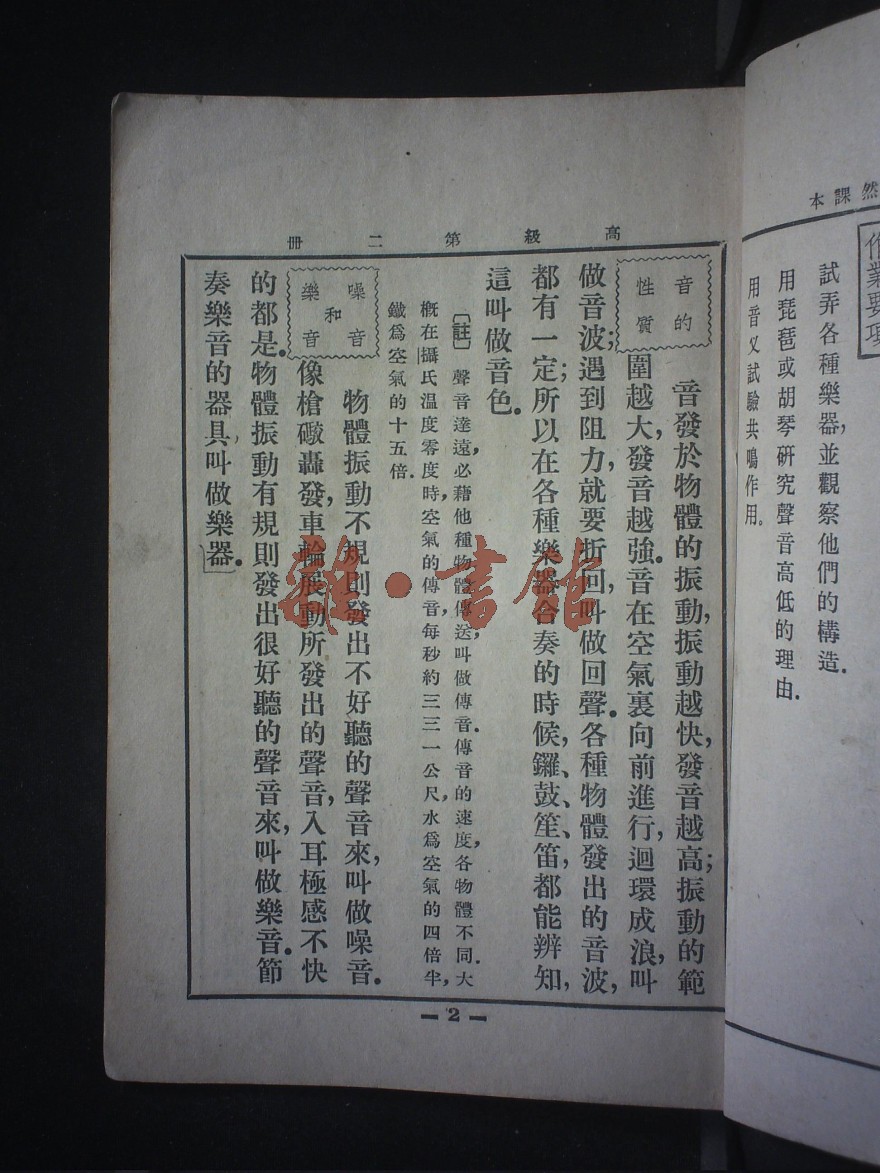 然課本
作業要項
試弄各種樂器,並觀察他們的構造.
用琵琶或胡琴研究聲音高低的理由.
用音叉試驗共鳴作用。
高級第二冊
音的
性質
音發於物體的振動,振動越快,發音越高;振動的範
圍越大,發音越強.音在空氣裏向前進行,迴環成浪,叫
做音波;遇到阻力,就要折回,叫做回聲.各種物體發出的音波,
都有一定;所以在各種樂器合奏的時候,鑼、鼓、笙、笛,都能辨知,
這叫做音色.
〔註〕聲音達遠,必藉他種物體傳送,叫做傳音.傳音的速度,各物體不同.大
概在攝氏溫度零度時,空氣的傳音,每秒約三三一公尺,水爲空氣的四倍半,
鐵爲空氣的十五倍.
噪音
和
樂音
物體振動不規則發出不好聽的聲音來,叫做噪音.
像槍礮轟發,車輪展動所發出的聲音,入耳極感不快
的都是.物體振動有規則發出很好聽的聲音來,叫做樂音.節
奏樂音的器具,叫做樂器.
2
雜·書館